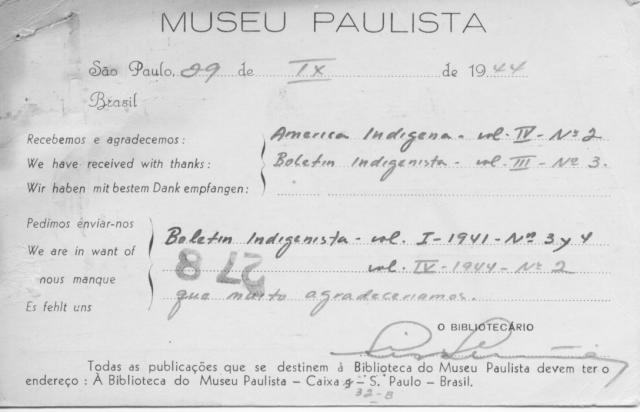 MUSEU PAULISTA
São Paulo, 29 de IX de 1944
Brasil
Recebemos e agradecemos:
We have received with thanks:
Wir haben mit bestem Dank empfangen:
America Indigena - vol. IV - Nº 2
Boletin Indigenista - vol. III - Nº 3.
Pedimos enviar-nos
We are in want of
nous manque
Es fehlt uns
Boletin Indigenista - vol. I - 1941 - Nos 3 y 4
vol. IV - 1944 - Nº 2
que muito agradeceriamos.
27 8
O BIBLIOTECÁRIO
Todas as publicações que se destinem à Biblioteca do Museu Paulista devem ter o
endereço : À Biblioteca do Museu Paulista – Caixa – S. Paulo – Brasil.
32-B